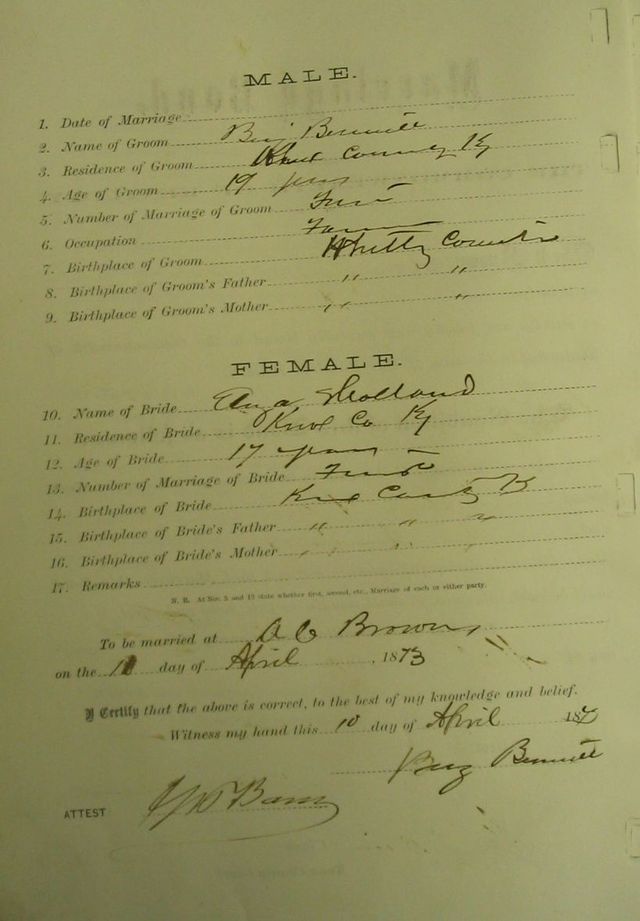 MALE.
1. Date of Marriage
2. Name of Groom Benj Bennett
3. Residence of Groom Knox County Ky
4. Age of Groom 19 years
5. Number of Marriage of Groom First
6. Occupation Farmer
7. Birthplace of Groom Whitley County
8. Birthplace of Groom's Father " "
9. Birthplace of Groom's Mother " "
FEMALE.
10. Name of Bride Holland
11. Residence of Bride Knox Co Ky
12. Age of Bride 17 years
13. Number of Marriage of Bride First
14. Birthplace of Bride Knox County K
15. Birthplace of Bride's Father " " "
16. Birthplace of Bride's Mother " " "
17. Remarks
N. B. At Nos. 5 and 13 state whether first, second, etc., Marriage of each or either party.
To be married at A C Browns
on the day of April, 1873
I Certify that the above is correct, to the best of my knowledge and belief.
Witness my hand this 10 day of April 187
Benj Bennett
ATTEST